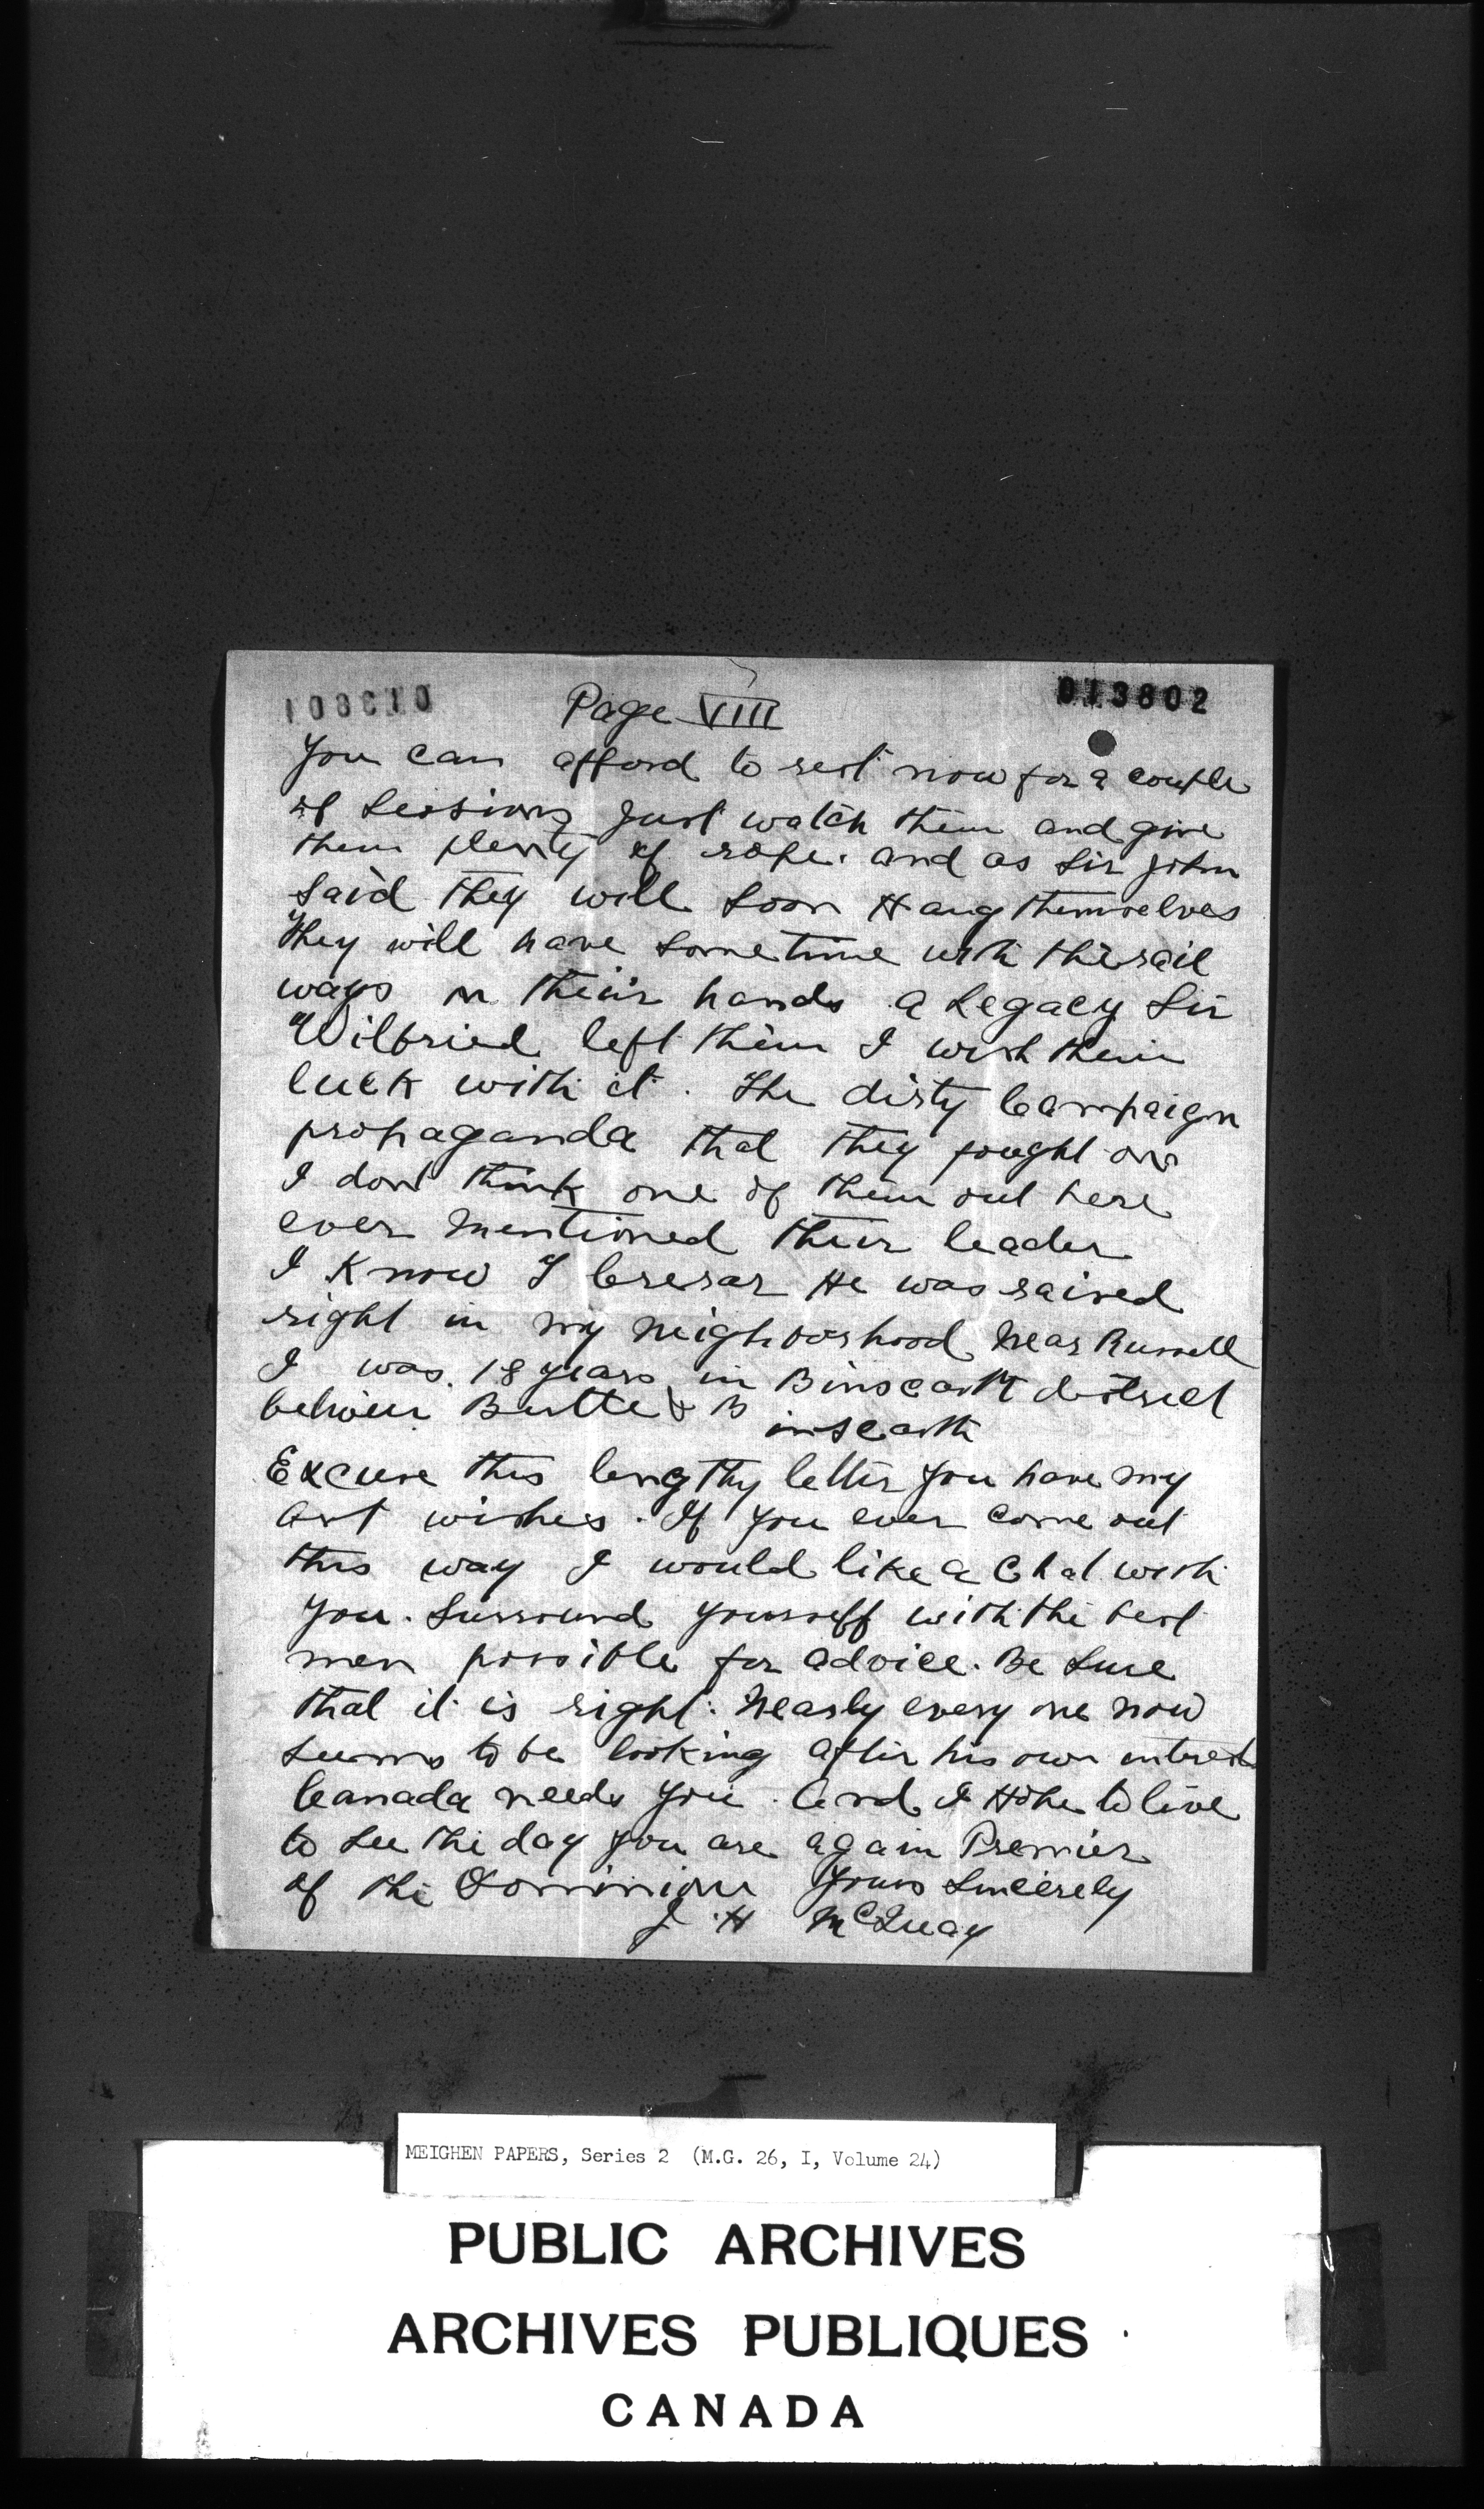 108010
Page VIII
013802
You can afford to rest now for a couple
of Sessions Just watch them and give
them plenty of rope. and as Sir John
Said they will soon Hang themselves
They will have some time with the rail
ways on their hands a Legacy Sir
Wilfried left them I wish them
luck with it. The dirty Campaign
propaganda that they fought on
I dont think one of them out here
ever mentioned their leader
I Know T Crerar He was raised
right in my neighborhood Near Russell
I was 18 years in Binscarth district
between Birtle & B
inscarth
Excuse this lengthy letter you have my
best wishes. If you ever come out
this way I would like a Chat with
you. Surround yourself with the best
men possible for advice. Be Sure
that it is right. Nearly every one now
seems to be looking after his own interest
Canada needs you. And I Hope to live
to see the day you are again Premier
of the Dominion Yours Sincerely
J. H McQuay
MEIGHEN PAPERS, Series 2 (M.G. 26, I, Volume 24)
PUBLIC ARCHIVES
ARCHIVES PUBLIQUES
CANADA